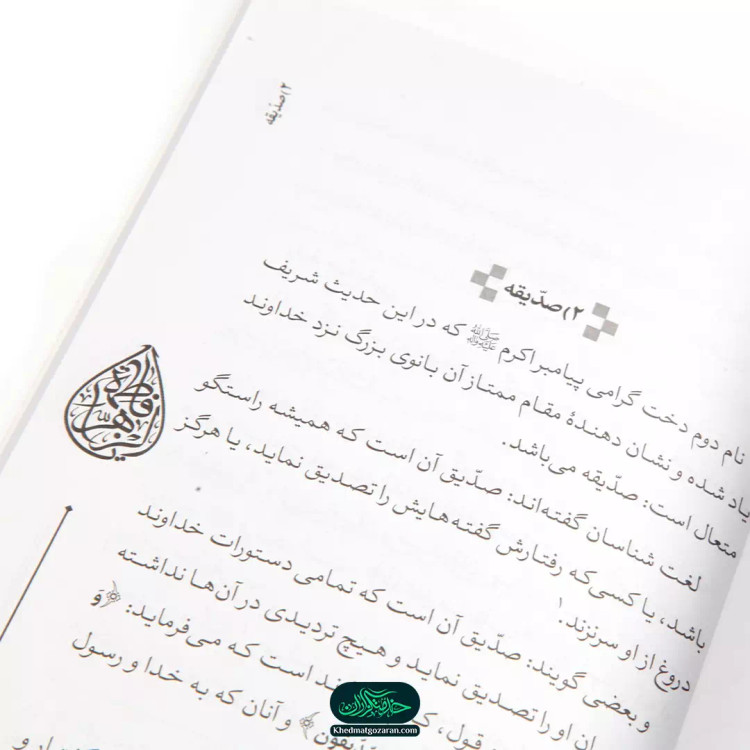 ۲) صدّیقه
۲) صدّیقه
نام دوم دخت گرامی پیامبر اکرم ﷺ که در این حدیث شریف
یاد شده و نشان دهندهٔ مقام ممتاز آن بانوی بزرگ نزد خداوند
متعال است: صدّیقه می‌باشد.
لغت شناسان گفته‌اند: صدّیق آن است که همیشه راستگو
باشد، یا کسی که رفتارش گفته‌هایش را تصدیق نماید، یا هرگز
دروغ از او سر نزند.۱
و بعضی گویند: صدّیق آن است که تمامی دستورات خداوند
او را تصدیق نماید و هیچ تردیدی در آن‌ها نداشته
قول، ند است که می‌فرماید: ﴿وَ
﴾ و آنان که به خدا و رسول
فاطمة الزهراء
خدمتگزاران
Khedmatgozaran.com